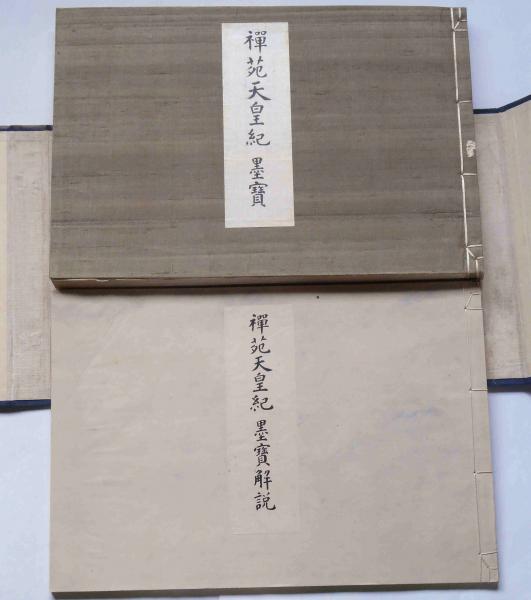 禪苑天皇紀 墨寶
禪苑天皇紀 墨寶解說